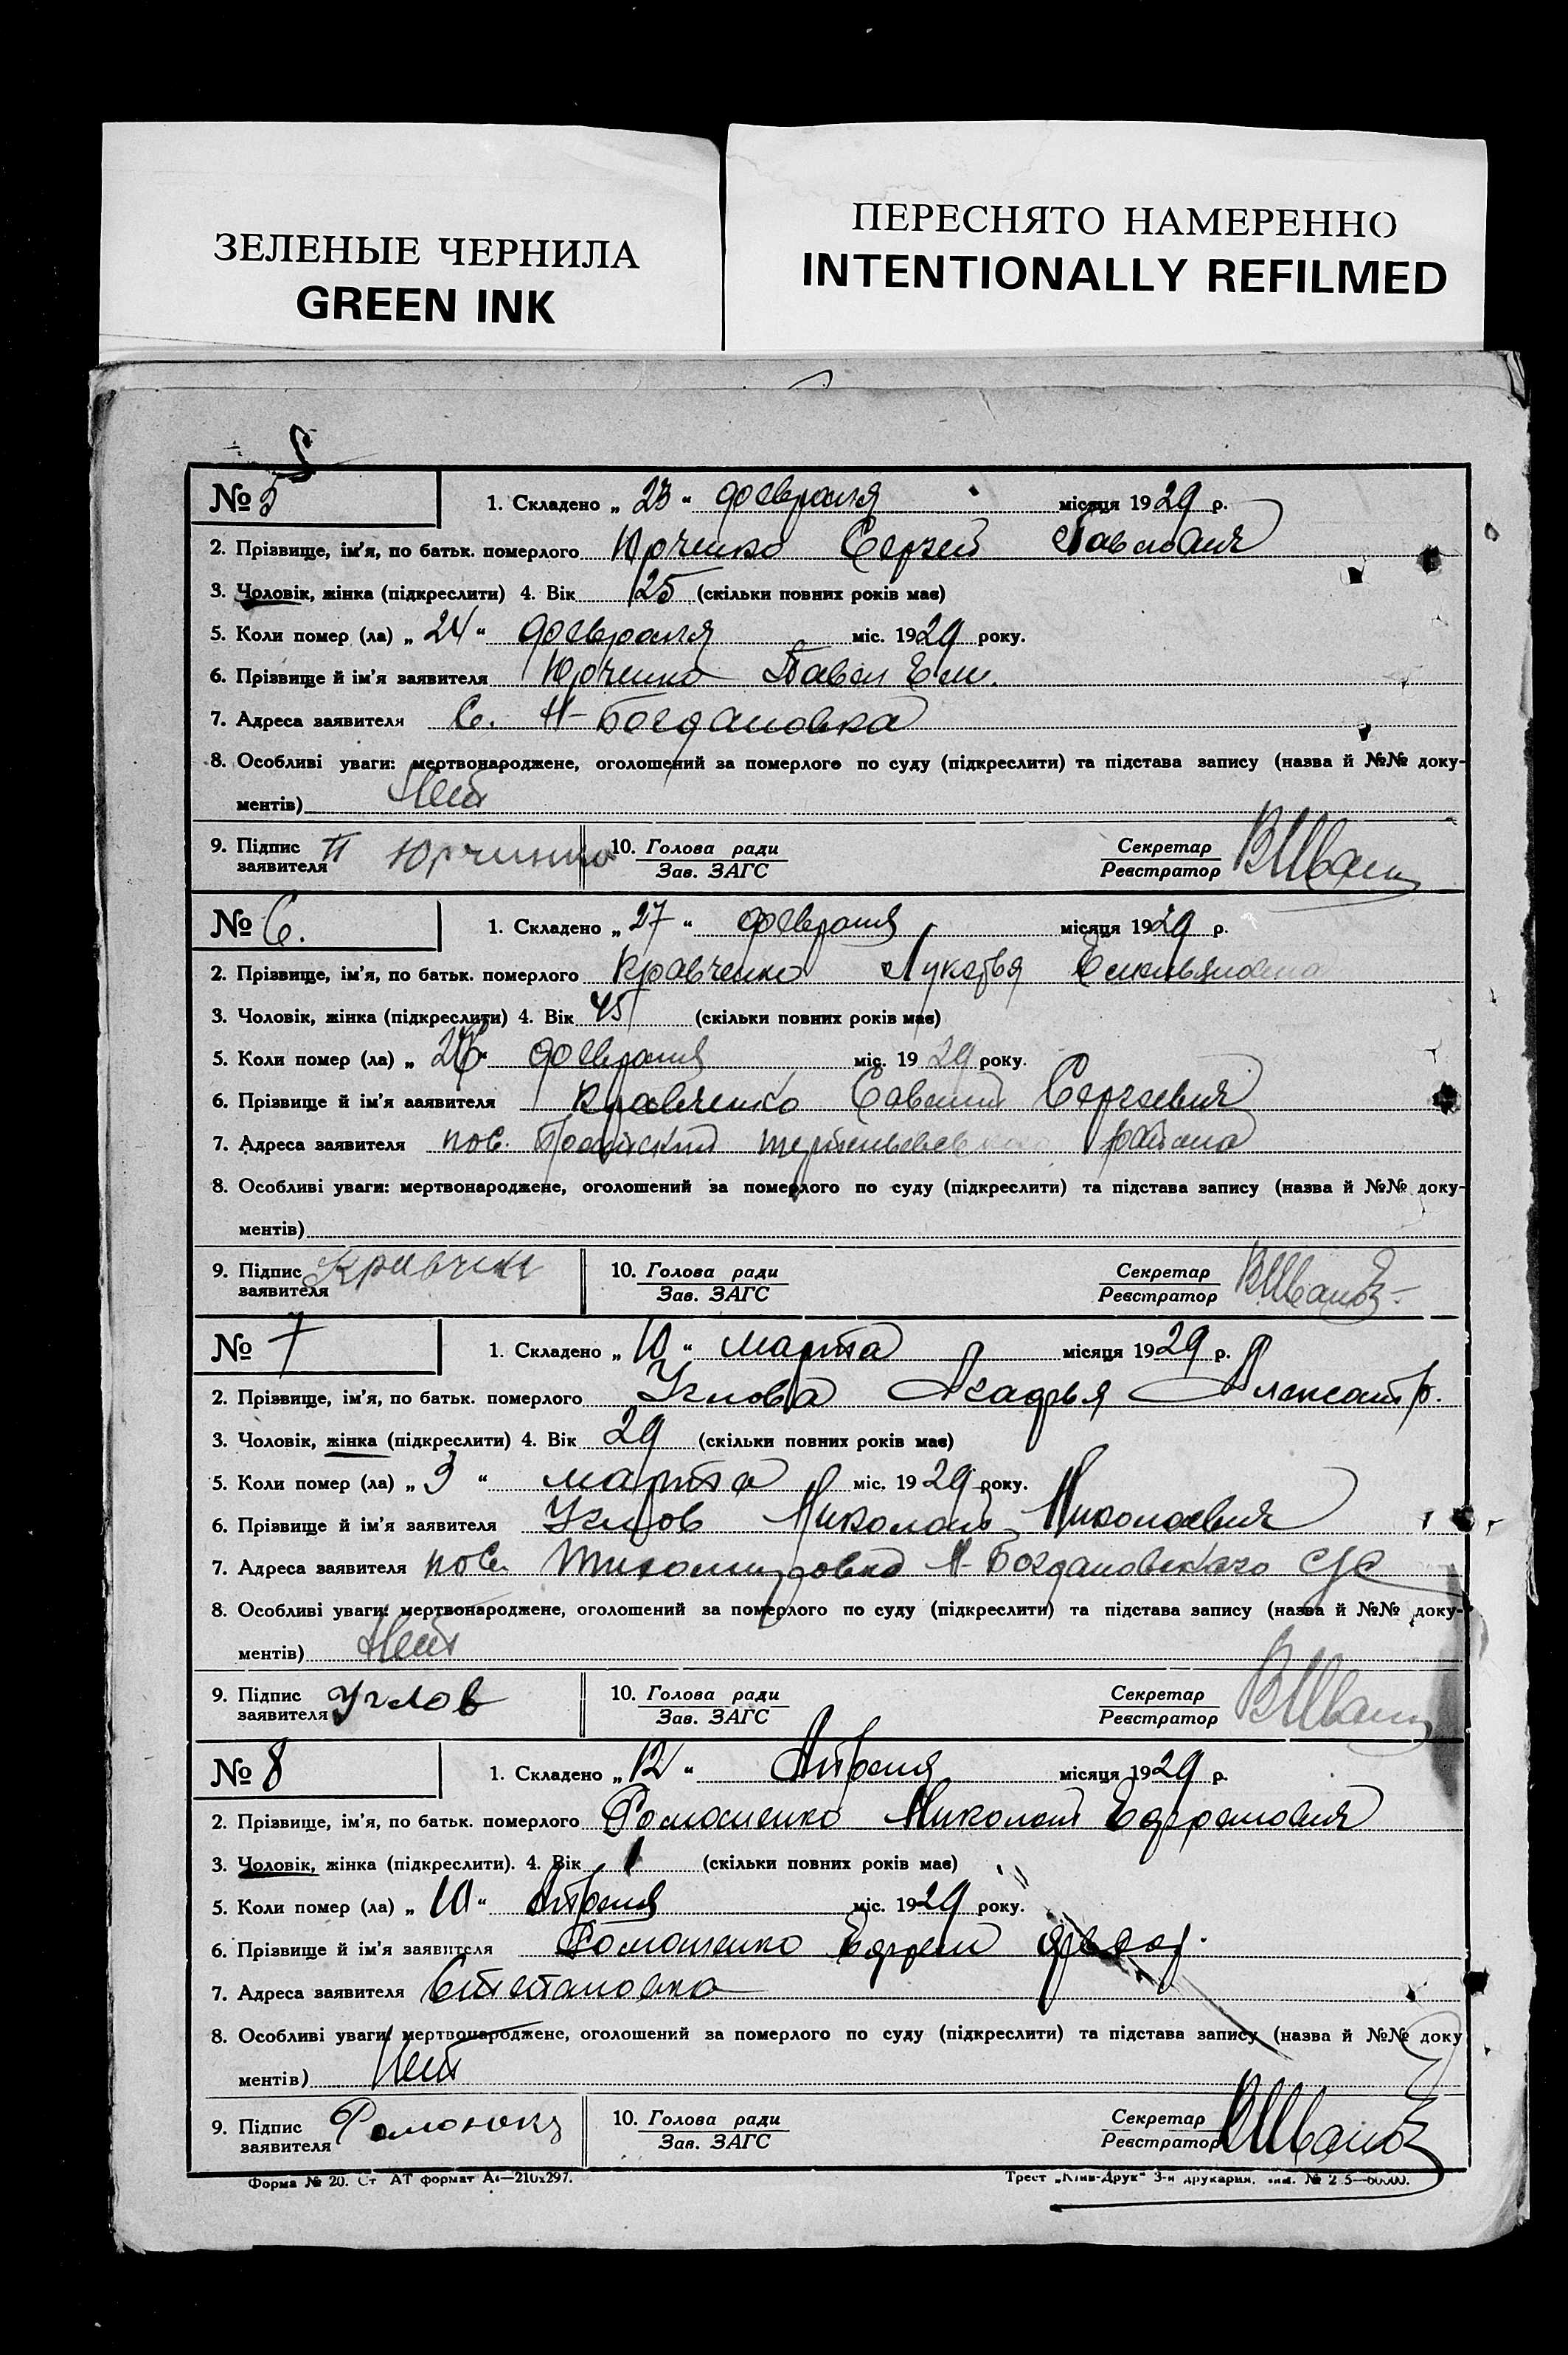 ЗЕЛЕНЫЕ ЧЕРНИЛА
GREEN INK
ПЕРЕСНЯТО НАМЕРЕННО
INTENTIONALLY REFILMED
№ 5 1. Складено „ 23 “ февраля місяця 1929 р.
2. Прізвище, ім'я, по батьк. померлого Юрченко Сергей Павлович
3. Чоловік, жінка (підкреслити) 4. Вік 25 (скільки повних років має)
5. Коли помер (ла) „ 24 “ февраля міс. 1929 року.
6. Прізвище й ім'я заявителя Юрченко Павел Ем.
7. Адреса заявителя С. Н-Богдановка
8. Особливі уваги: мертвонароджене, оголошений за померлого по суду (підкреслити) та підстава запису (назва й №№ доку-
ментів) Нет
9. Підпис заявителя П Юрчинко 10. Голова ради Зав. ЗАГС Секретар Реєстратор
№ 6. 1. Складено „ 27 “ февраля місяця 1929 р.
2. Прізвище, ім'я, по батьк. померлого Кравченко Лукерья Емельяновна
3. Чоловік, жінка (підкреслити) 4. Вік 45 (скільки повних років має)
5. Коли помер (ла) „ “ февраля міс. 1929 року.
6. Прізвище й ім'я заявителя Кравченко Савелий Сергеевич
7. Адреса заявителя пос. района
8. Особливі уваги: мертвонароджене, оголошений за померлого по суду (підкреслити) та підстава запису (назва й №№ доку-
ментів)
9. Підпис заявителя 10. Голова ради Зав. ЗАГС Секретар Реєстратор
№ 7 1. Складено „ 10 “ марта місяця 1929 р.
2. Прізвище, ім'я, по батьк. померлого Углова Александр.
3. Чоловік, жінка (підкреслити) 4. Вік 29 (скільки повних років має)
5. Коли помер (ла) „ 3 “ марта міс. 1929 року.
6. Прізвище й ім'я заявителя Углов Николай Николаевич
7. Адреса заявителя пос. Тихомировка Н-Богдановского с/с
8. Особливі уваги: мертвонароджене, оголошений за померлого по суду (підкреслити) та підстава запису (назва й №№ доку-
ментів) Нет
9. Підпис заявителя Углов 10. Голова ради Зав. ЗАГС Секретар Реєстратор
№ 8 1. Складено „ 12 “ Апреля місяця 1929 р.
2. Прізвище, ім'я, по батьк. померлого Ромоненко Николай Ефремович
3. Чоловік, жінка (підкреслити). 4. Вік 1 (скільки повних років має)
5. Коли помер (ла) „ 10 “ Апреля міс. 1929 року.
6. Прізвище й ім'я заявителя Ромоненко Ефрем
7. Адреса заявителя Степановка
8. Особливі уваги: мертвонароджене, оголошений за померлого по суду (підкреслити) та підстава запису (назва й №№ доку
ментів) Нет
9. Підпис заявителя 10. Голова ради Зав. ЗАГС Секретар Реєстратор
Форма № 20. Ст АТ формат А4—210х297. Трест „Київ-Друк“ 3-я друкарня.